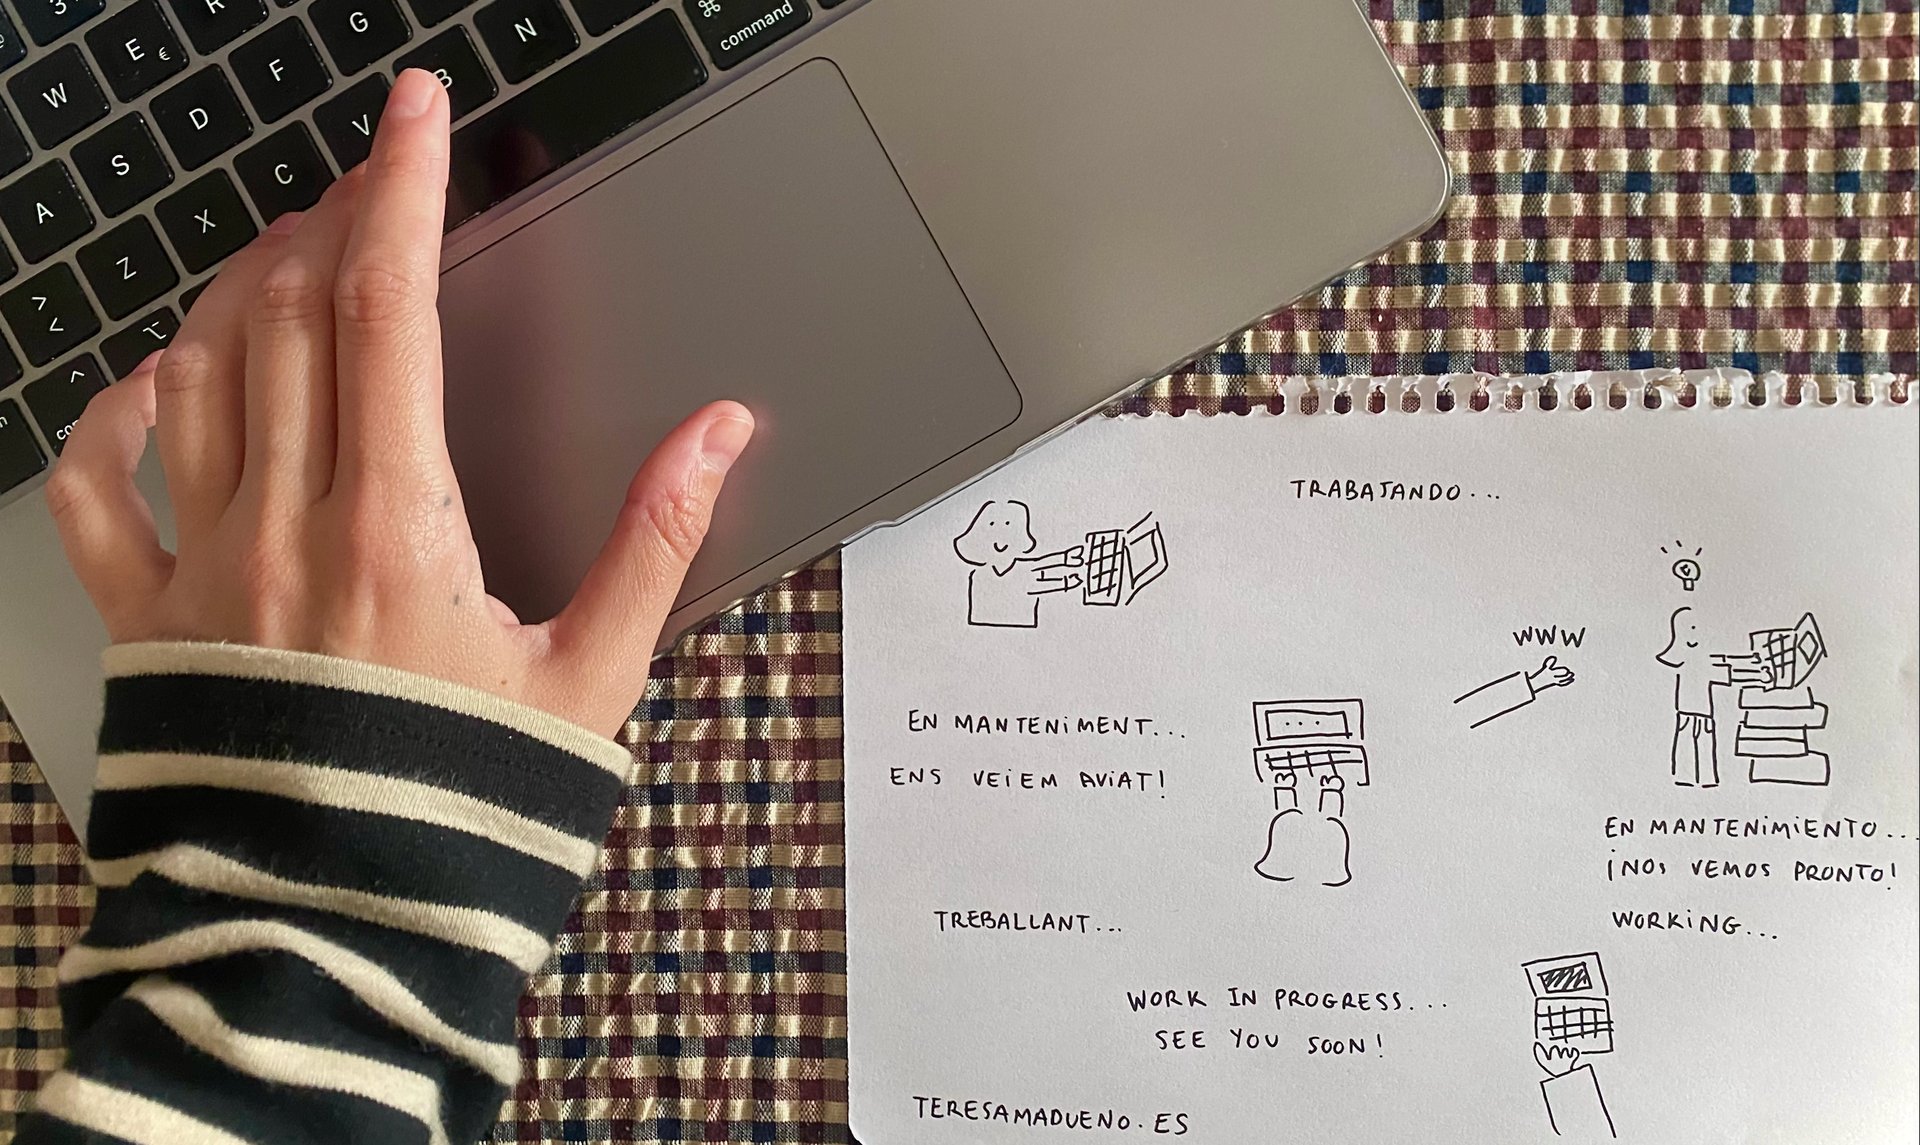 3
W
E €
R
G
N
⌘
command
D
F
V
B
A
S
C
Z
X
>
<
⌥
^
TRABAJANDO...
WWW
EN MANTENiMENT...
ENS VEiEM AViAT!
EN MANTENiMiENTO...
¡NOS VEMOS PRONTO!
TREBALLANT...
WORKiNG...
WORK IN PROGRESS...
SEE YOU SOON!
TERESAMADUENO.ES